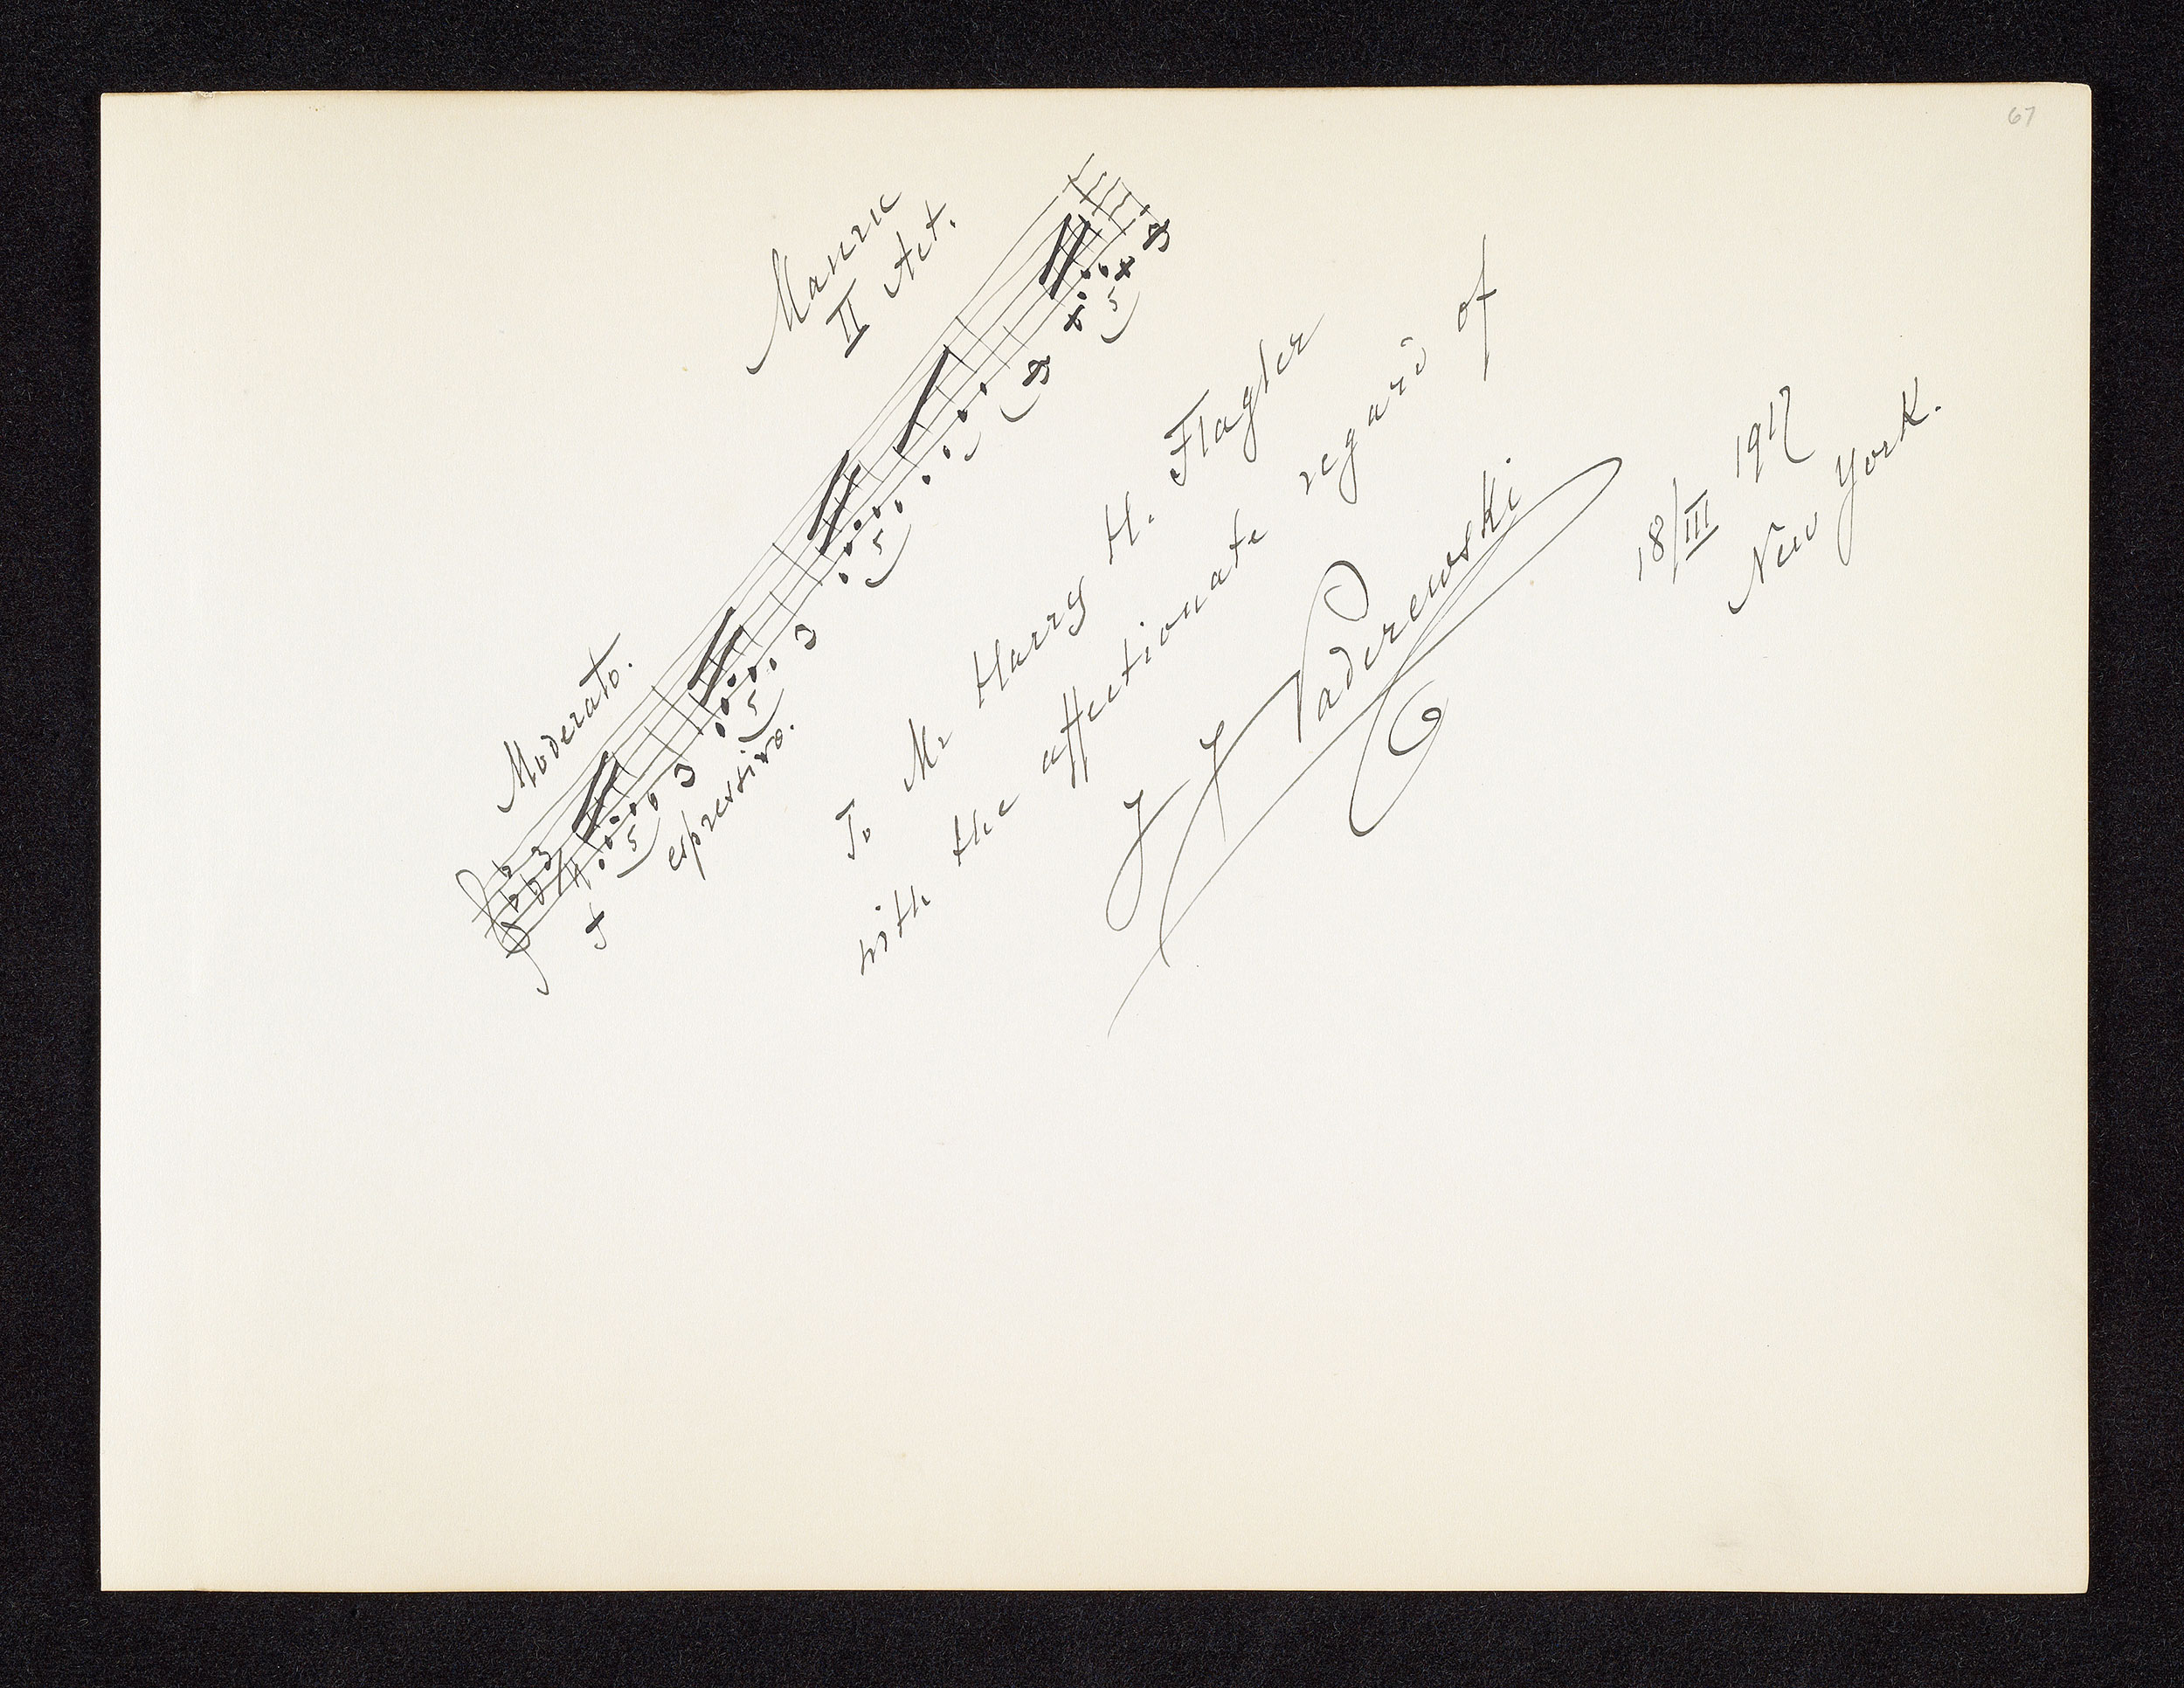 67
Manru
II Act.
Moderato.
3
4
5
5
5
5
f
espressivo.
To Mr Harry H. Flagler
with the affectionate regard of
I J Paderewski
18/III 1917
New York.